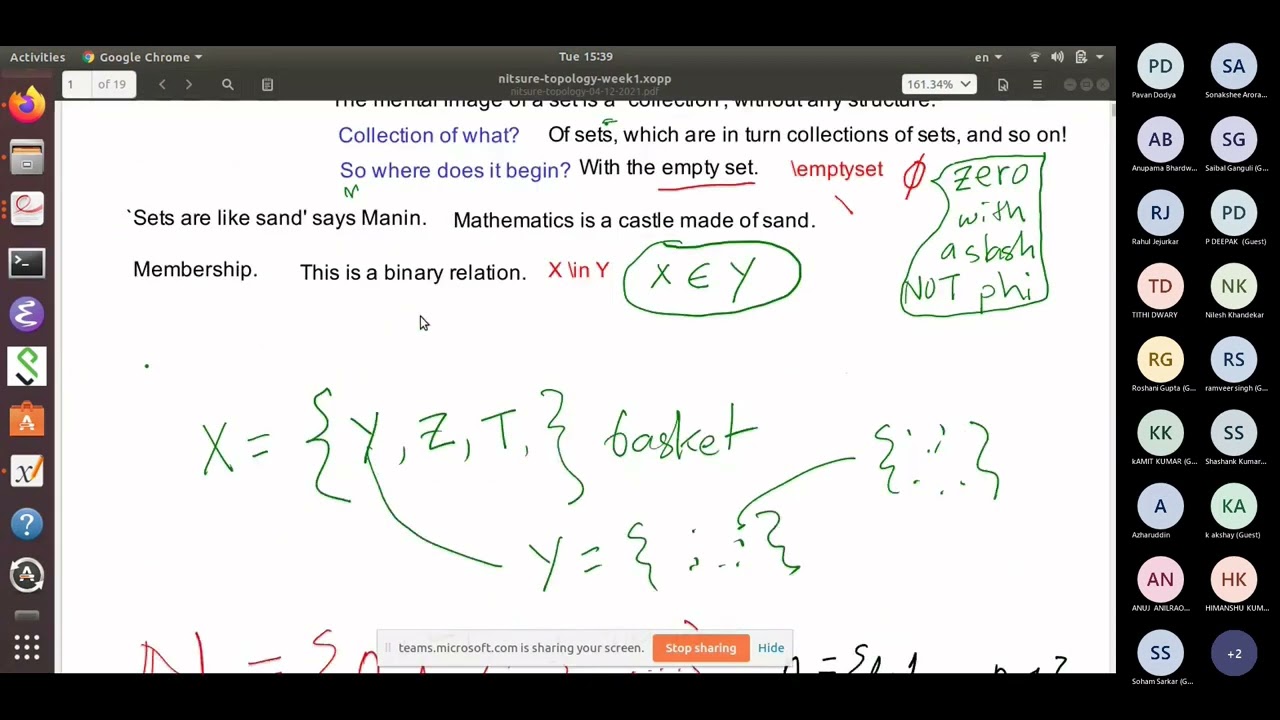 Activities Google Chrome Tue 15:39 en
1 of 19 nitsure-topology-week1.xopp 161.34%
nitsure-topology-04-12-2021.pdf
The mental image of a set is a 'collection', without any structure.
Collection of what? Of sets, which are in turn collections of sets, and so on!
So where does it begin? With the empty set. \emptyset ∅ zero
with
a slash
NOT phi
`Sets are like sand' says Manin. Mathematics is a castle made of sand.
Membership. This is a binary relation. X \in Y X ∈ Y
X = { Y, Z, T, } basket { }
Y = { }
teams.microsoft.com is sharing your screen. Stop sharing Hide
PD SA
Pavan Dodya Sonakshee Arora...
AB SG
Anupama Bhardw... Saibal Ganguli (G...
RJ PD
Rahul Jejurkar P DEEPAK (Guest)
TD NK
TITHI DWARY Nilesh Khandekar
RG RS
Roshani Gupta (G... ramveer singh (G...
KK SS
kAMIT KUMAR (G... Shashank Kumar...
A KA
Azharuddin k akshay (Guest)
AN HK
ANUJ ANILRAO... HIMANSHU KUM...
SS +2
Soham Sarkar (G...